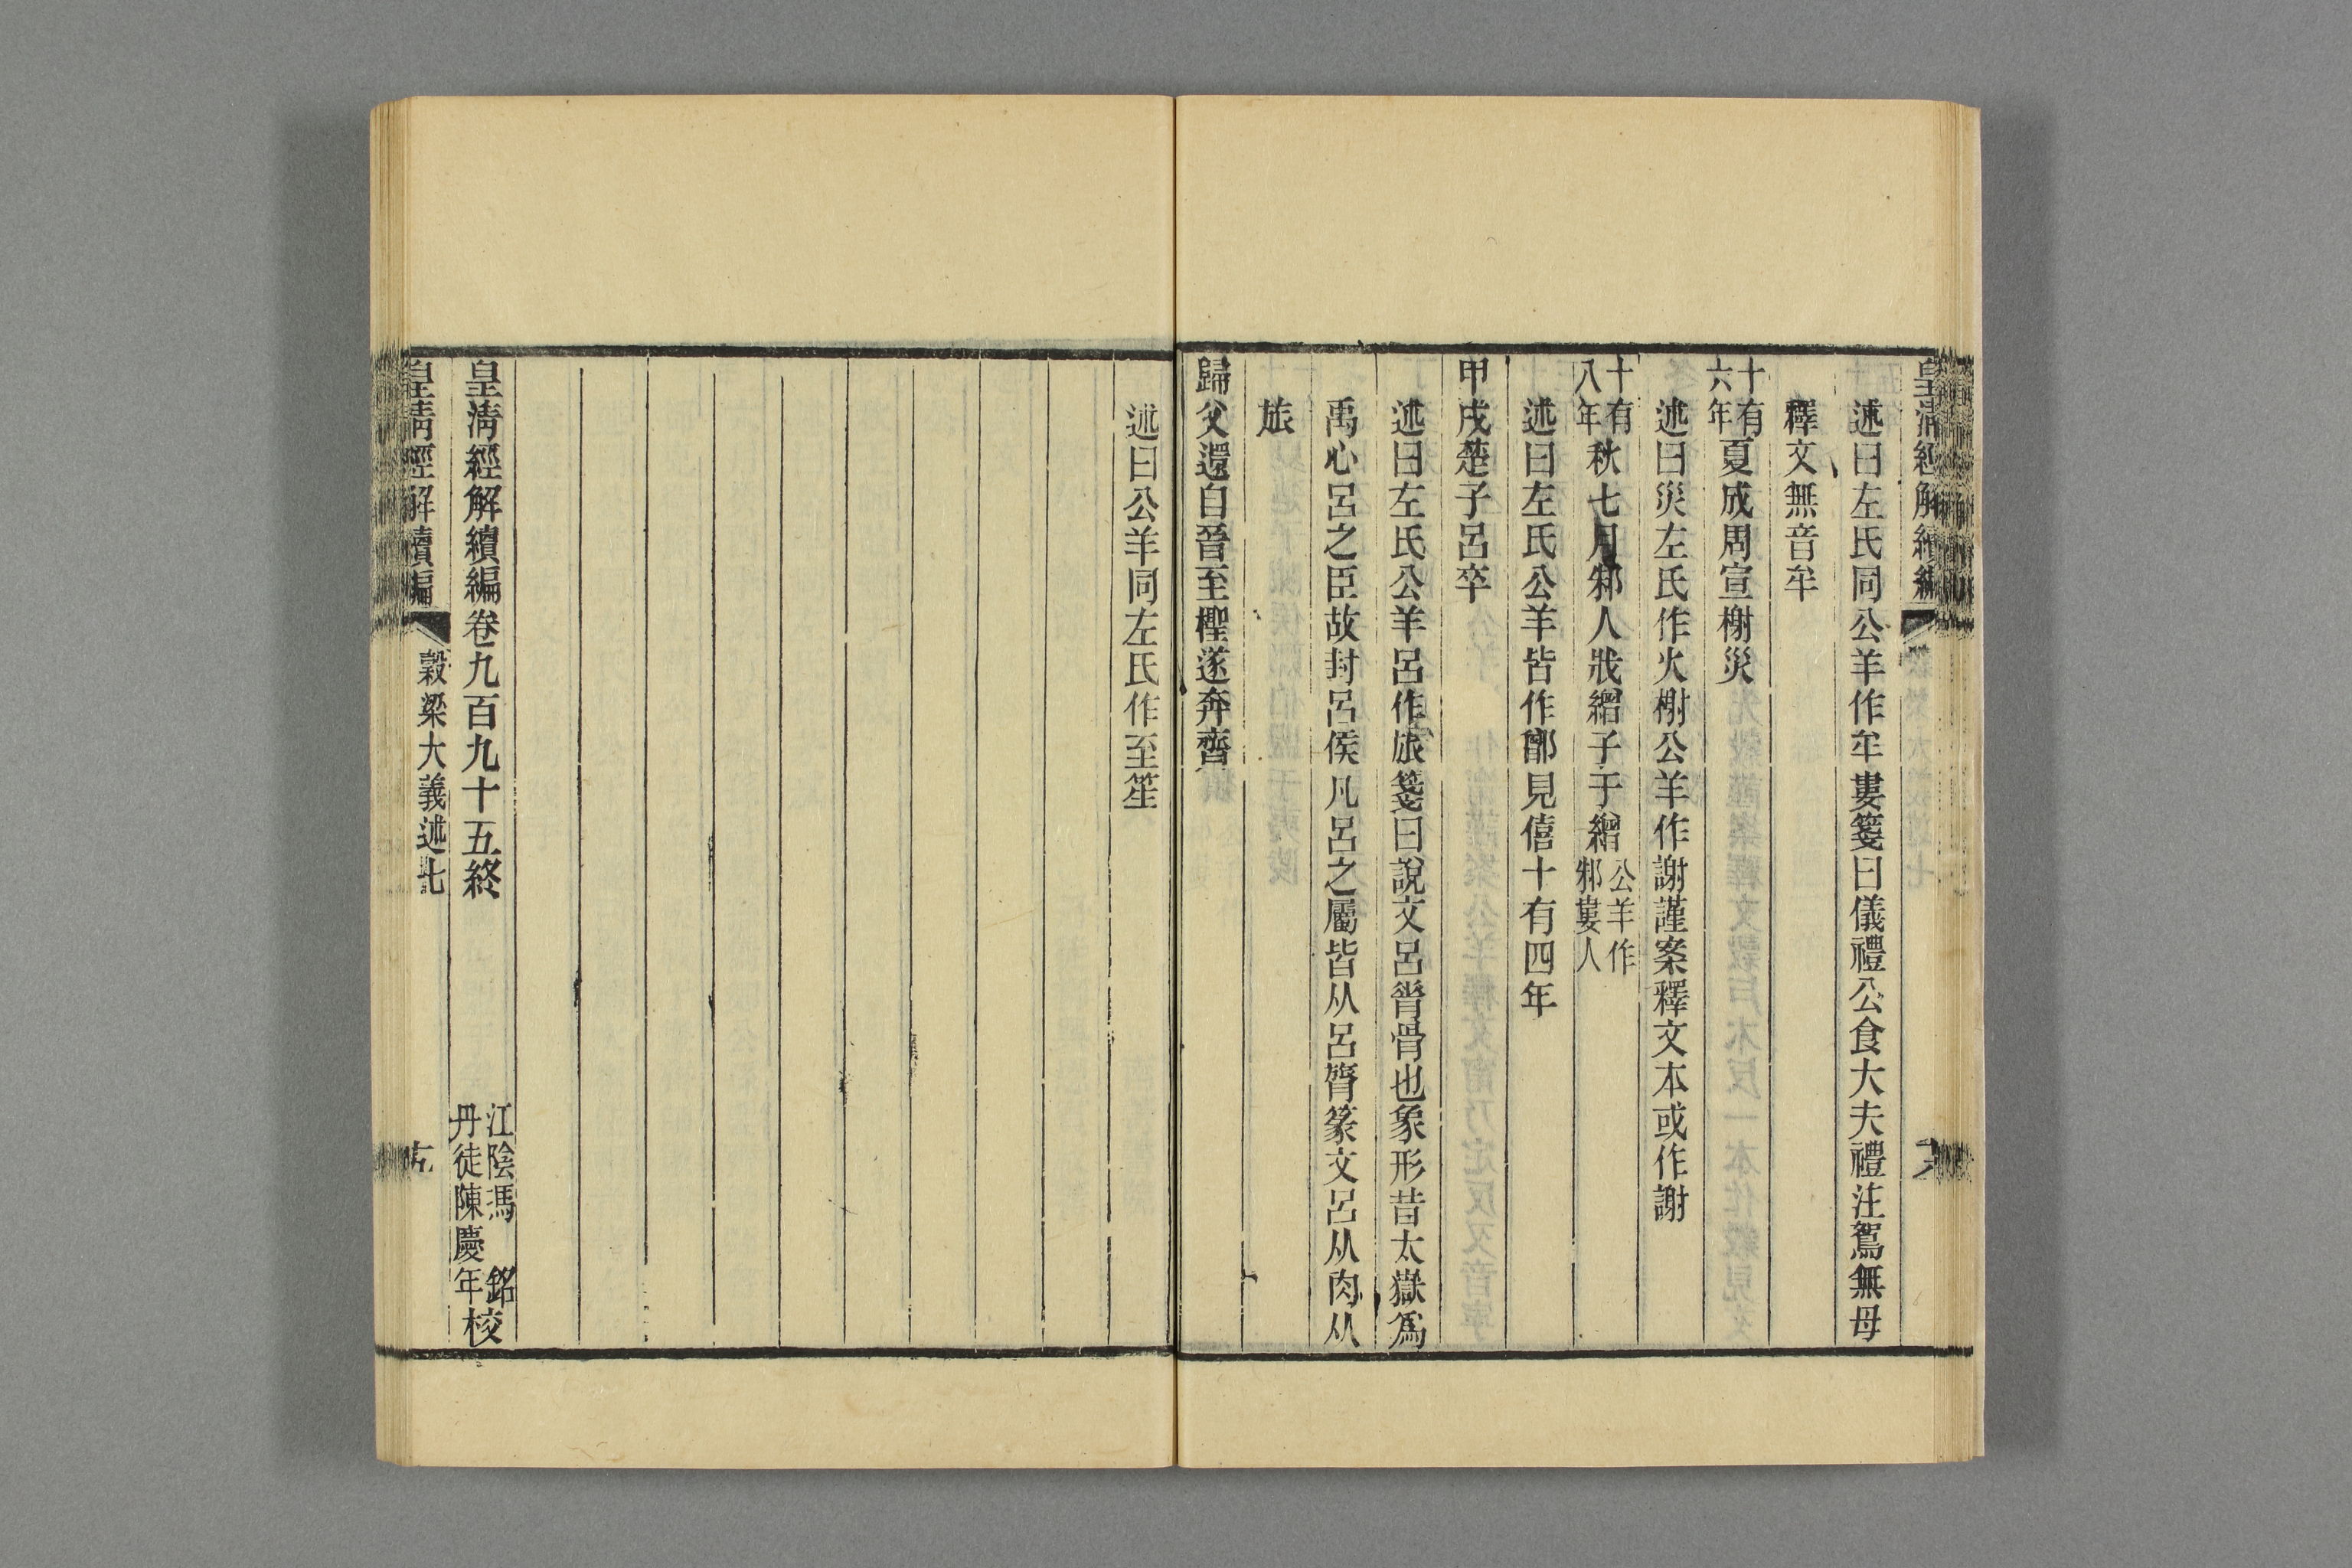 皇清經解續編
述曰左氏同公羊作牟婁箋曰儀禮公食大夫禮注鴽無母
釋文無音牟
十有六年夏成周宣榭災
述曰災左氏作火榭公羊作謝謹案釋文本或作謝
十有八年秋七月邾人戕繒子于繒公羊作邾婁人
述曰左氏公羊皆作鄫見僖十有四年
甲戌楚子呂卒
述曰左氏公羊呂作旅箋曰說文呂膂骨也象形昔太嶽爲
禹心呂之臣故封呂侯凡呂之屬皆从呂膂篆文呂从肉从
旅
歸父還自晉至檉遂奔齊
述曰公羊同左氏作至笙
皇清經解續編卷九百九十五終
江陰馮 銘
丹徒陳慶年校
皇清經解續編
穀梁大義述七